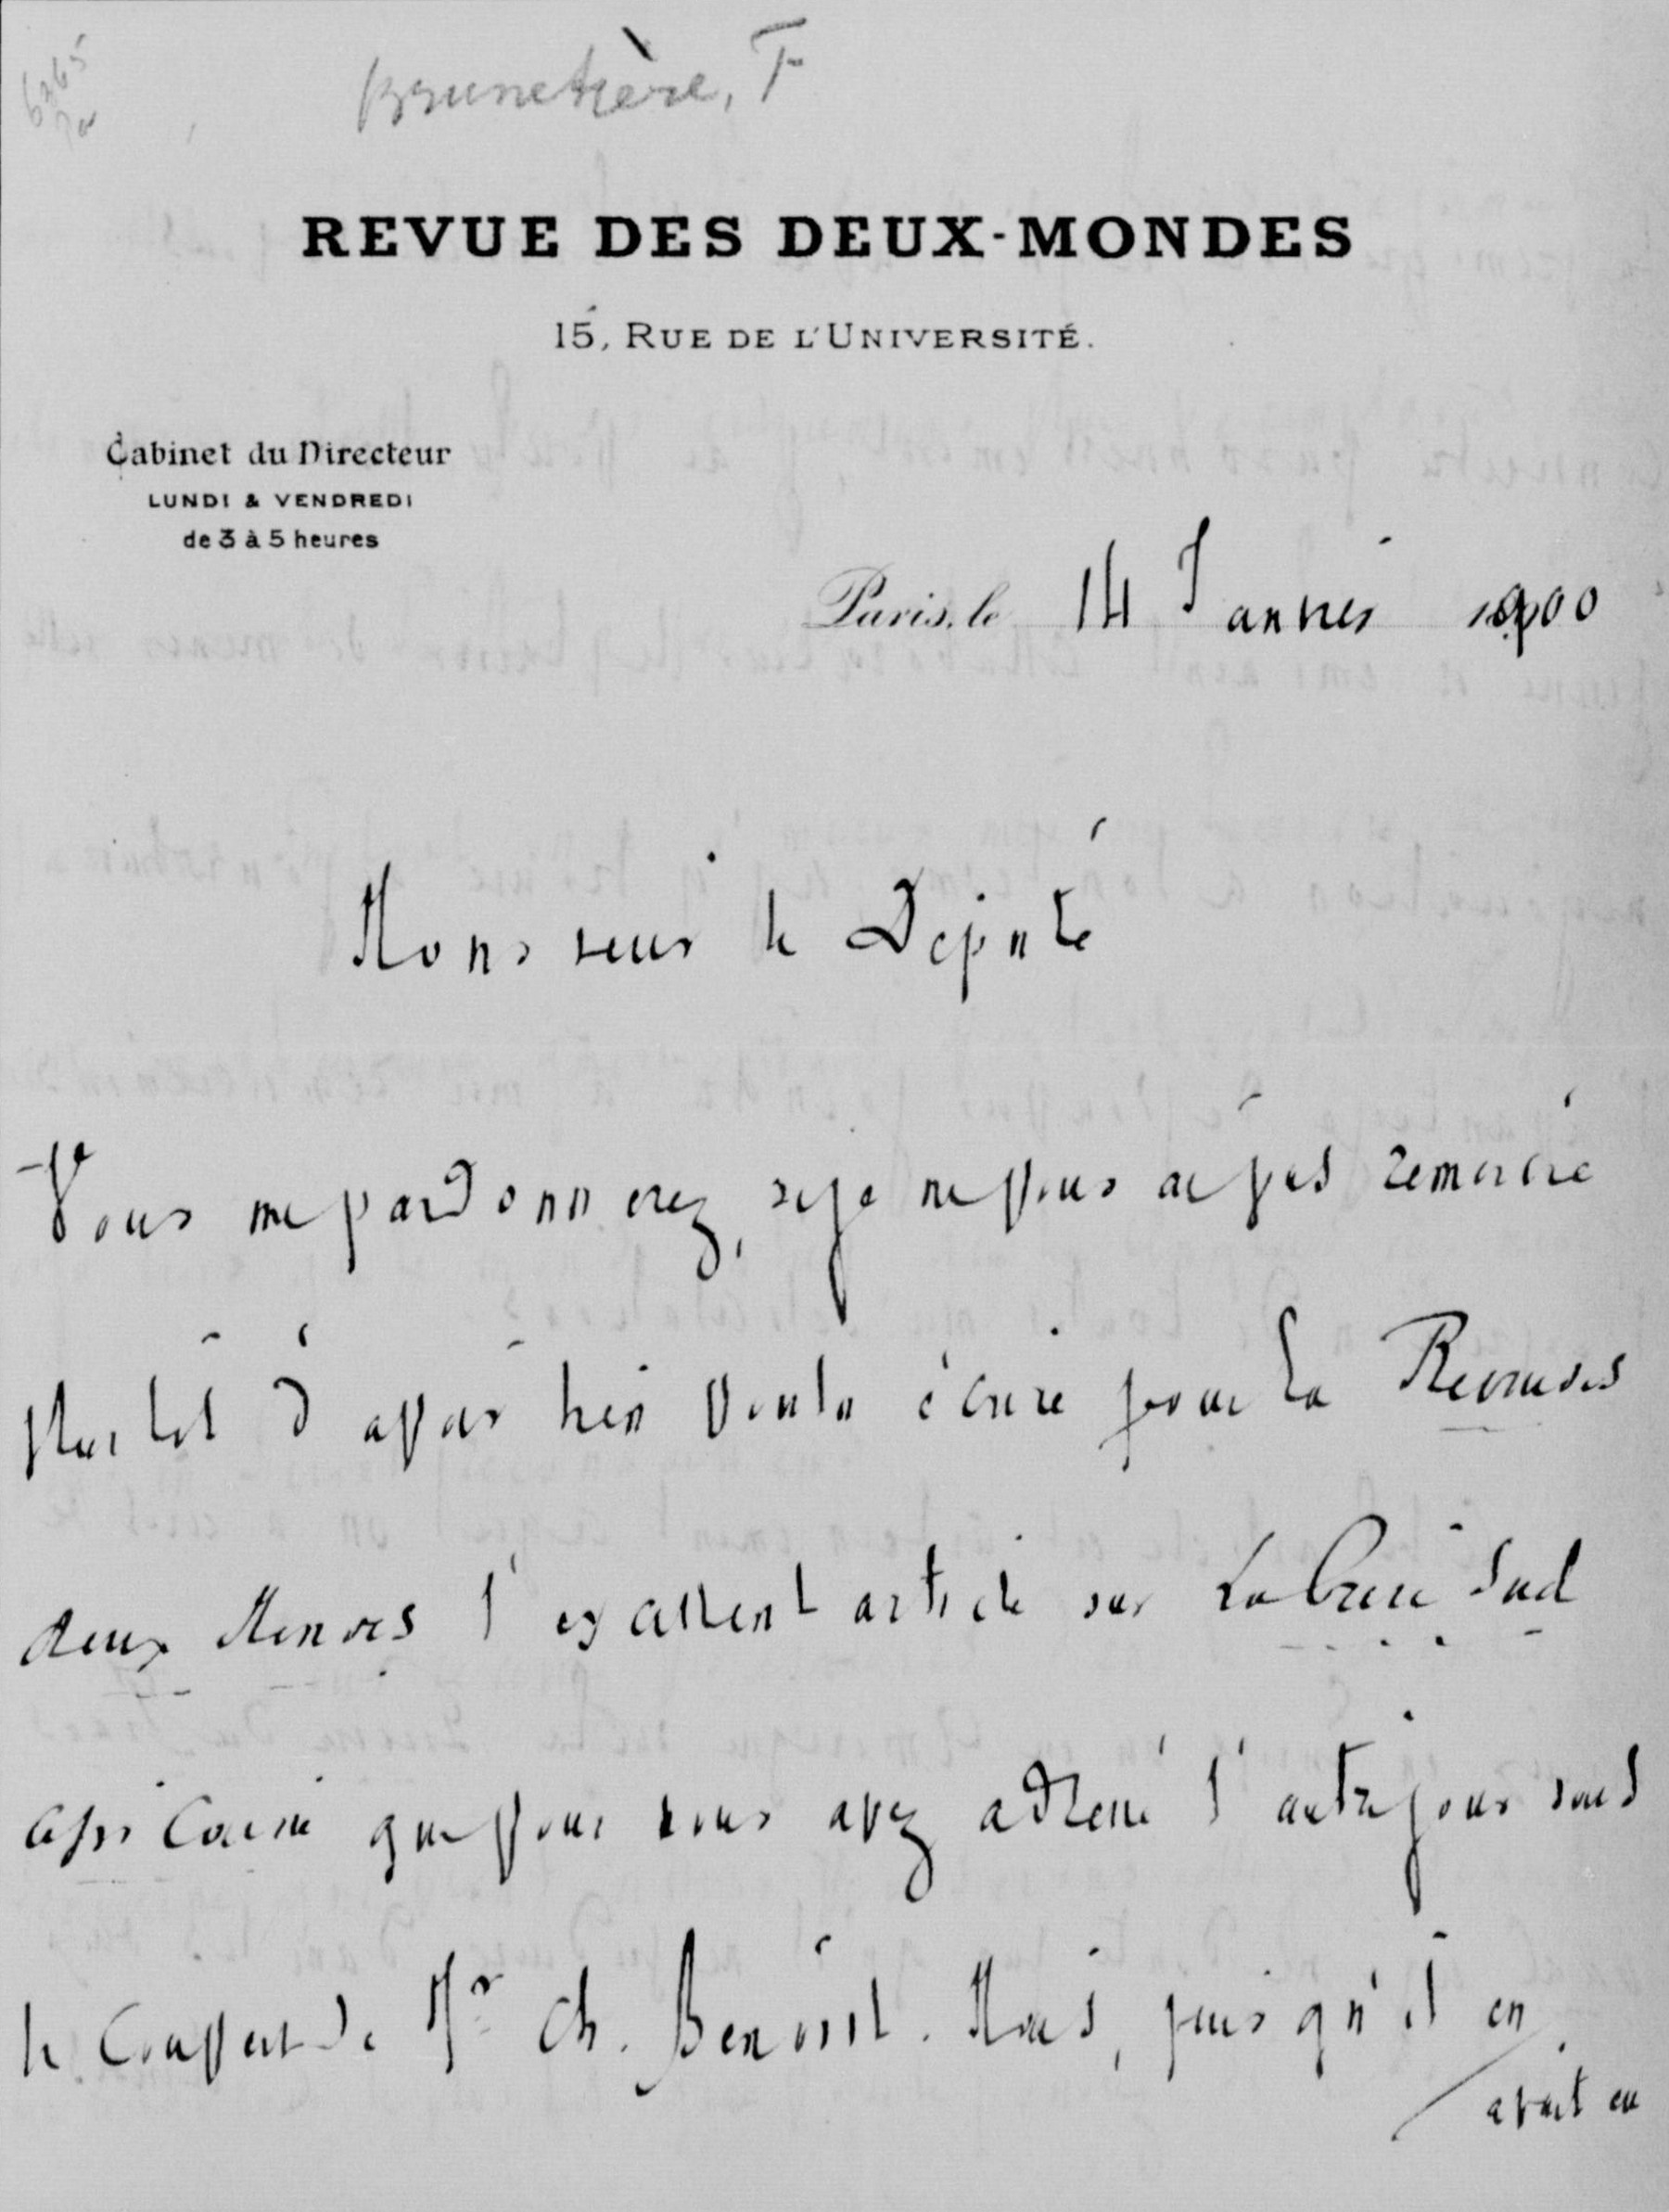 Brunetière, F
REVUE DES DEUX-MONDES
15, RUE DE L'UNIVERSITÉ.
Cabinet du Directeur
LUNDI & VENDREDI
de 3 à 5 heures
Paris, le 14 Janvier 1900
Monsieur le Député
Vous me pardonnerez, si je ne vous ai pas remercié
plus tôt d'avoir bien voulu écrire pour la Revue des
deux Mondes l'excellent article sur La Crise Sud
africaine que vous nous avez adressé l'autre jour sous
le couvert de Mr Ch. Benoist. Mais, puisqu'il en
avait eu